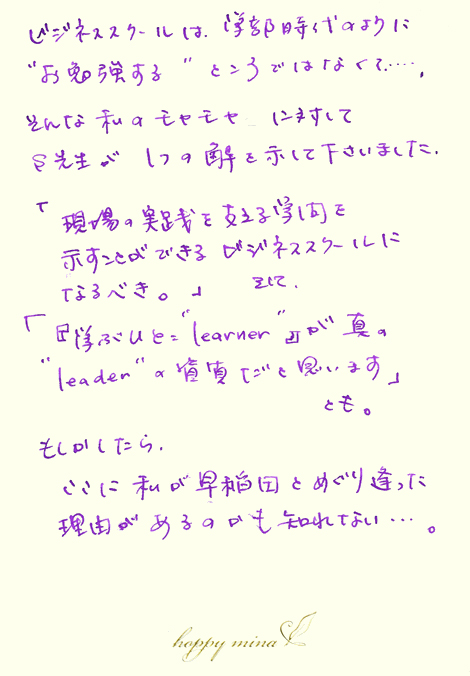 ビジネススクールは、学部時代のように
"お勉強する" ところではなくて……,
そんな 私の モヤモヤ に対して
S先生が 1つの 解を示して下さいました.
「現場の実践を支える学問を
示すことができる ビジネススクールに
なるべき。」 そして、
「『学ぶひと="learner"』が 真の
"leader"の資質だと思います」
とも。
もしかしたら、
ここに 私が 早稲田 と めぐり逢った
理由が あるのかも 知れない…。
happy mina